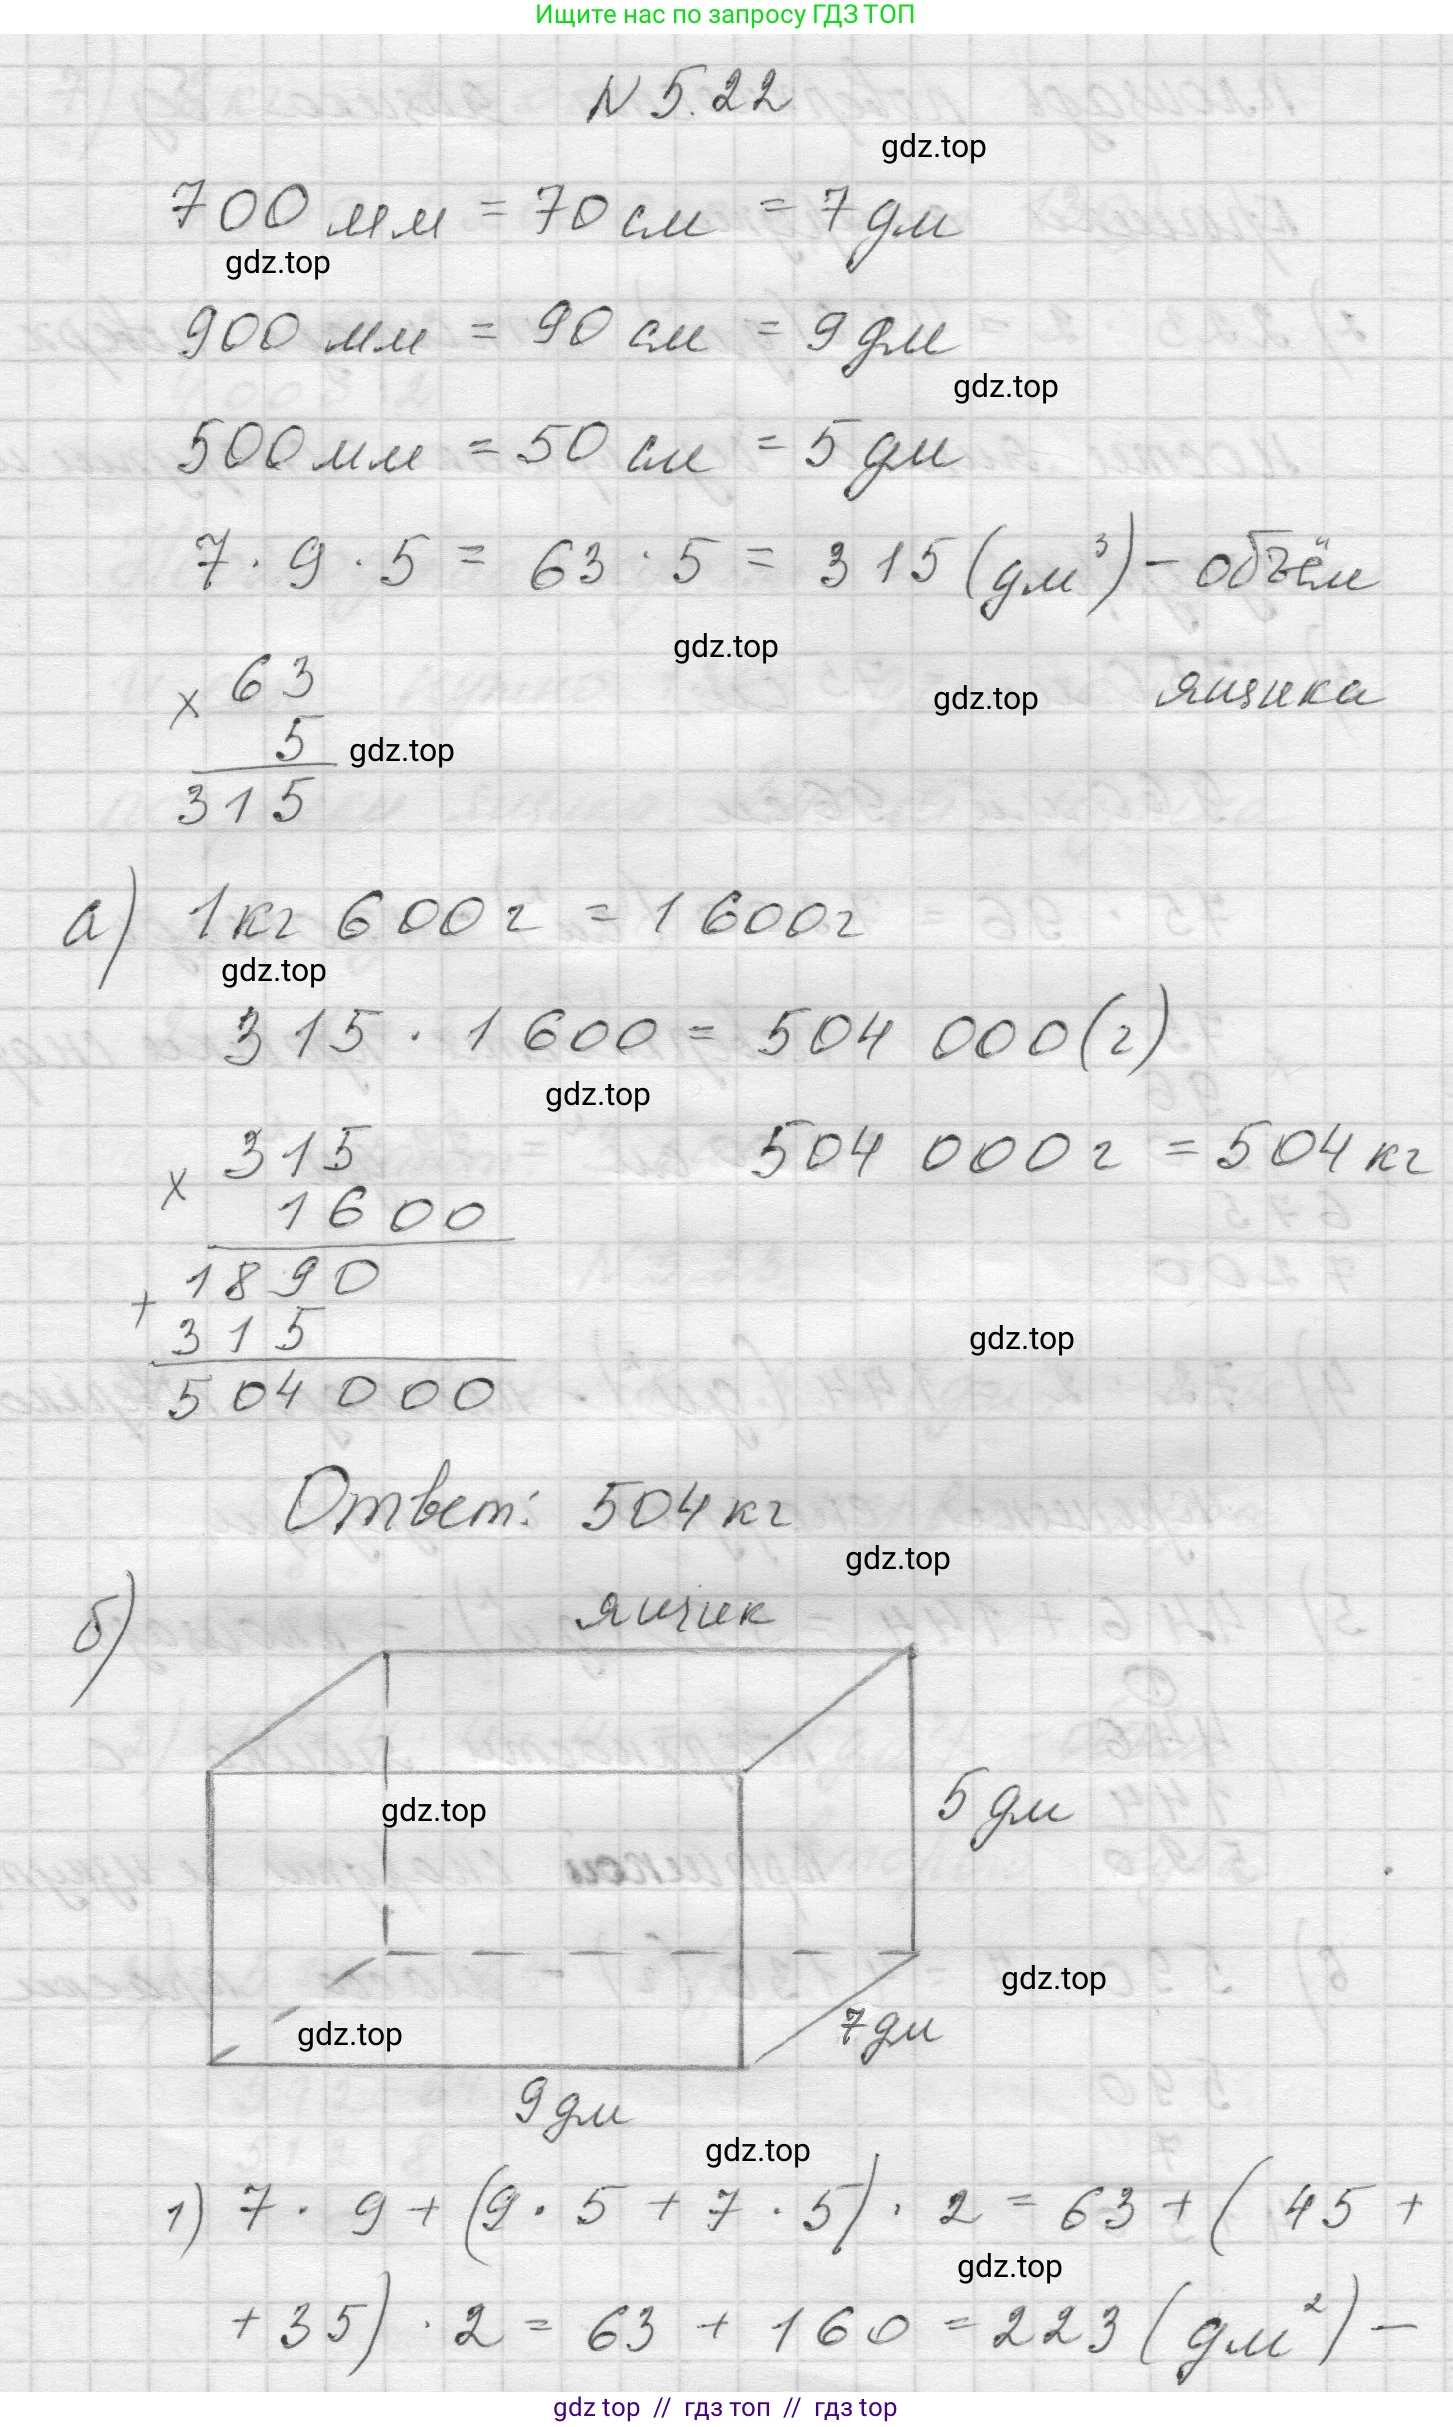 Ищите нас по запросу ГДЗ ТОП
N 5.22
gdz.top
700 мм = 70 см = 7 дм
gdz.top
900 мм = 90 см = 9 дм
gdz.top
500 мм = 50 см = 5 дм
7 · 9 · 5 = 63 · 5 = 315 (дм³) - объём
gdz.top
ящика
gdz.top
× 63
5
gdz.top
315
а) 1 кг 600 г = 1 600 г
gdz.top
315 · 1 600 = 504 000 (г)
gdz.top
× 315
504 000 г = 504 кг
1600
1890
+ 315
gdz.top
504 000
Ответ: 504 кг
gdz.top
б)
ящик
gdz.top
5 дм
gdz.top
gdz.top
7 дм
9 дм
gdz.top
1) 7 · 9 + (9 · 5 + 7 · 5) · 2 = 63 + (45 +
gdz.top
+ 35) · 2 = 63 + 160 = 223 (дм²) -
gdz top // гдз топ // гдз top